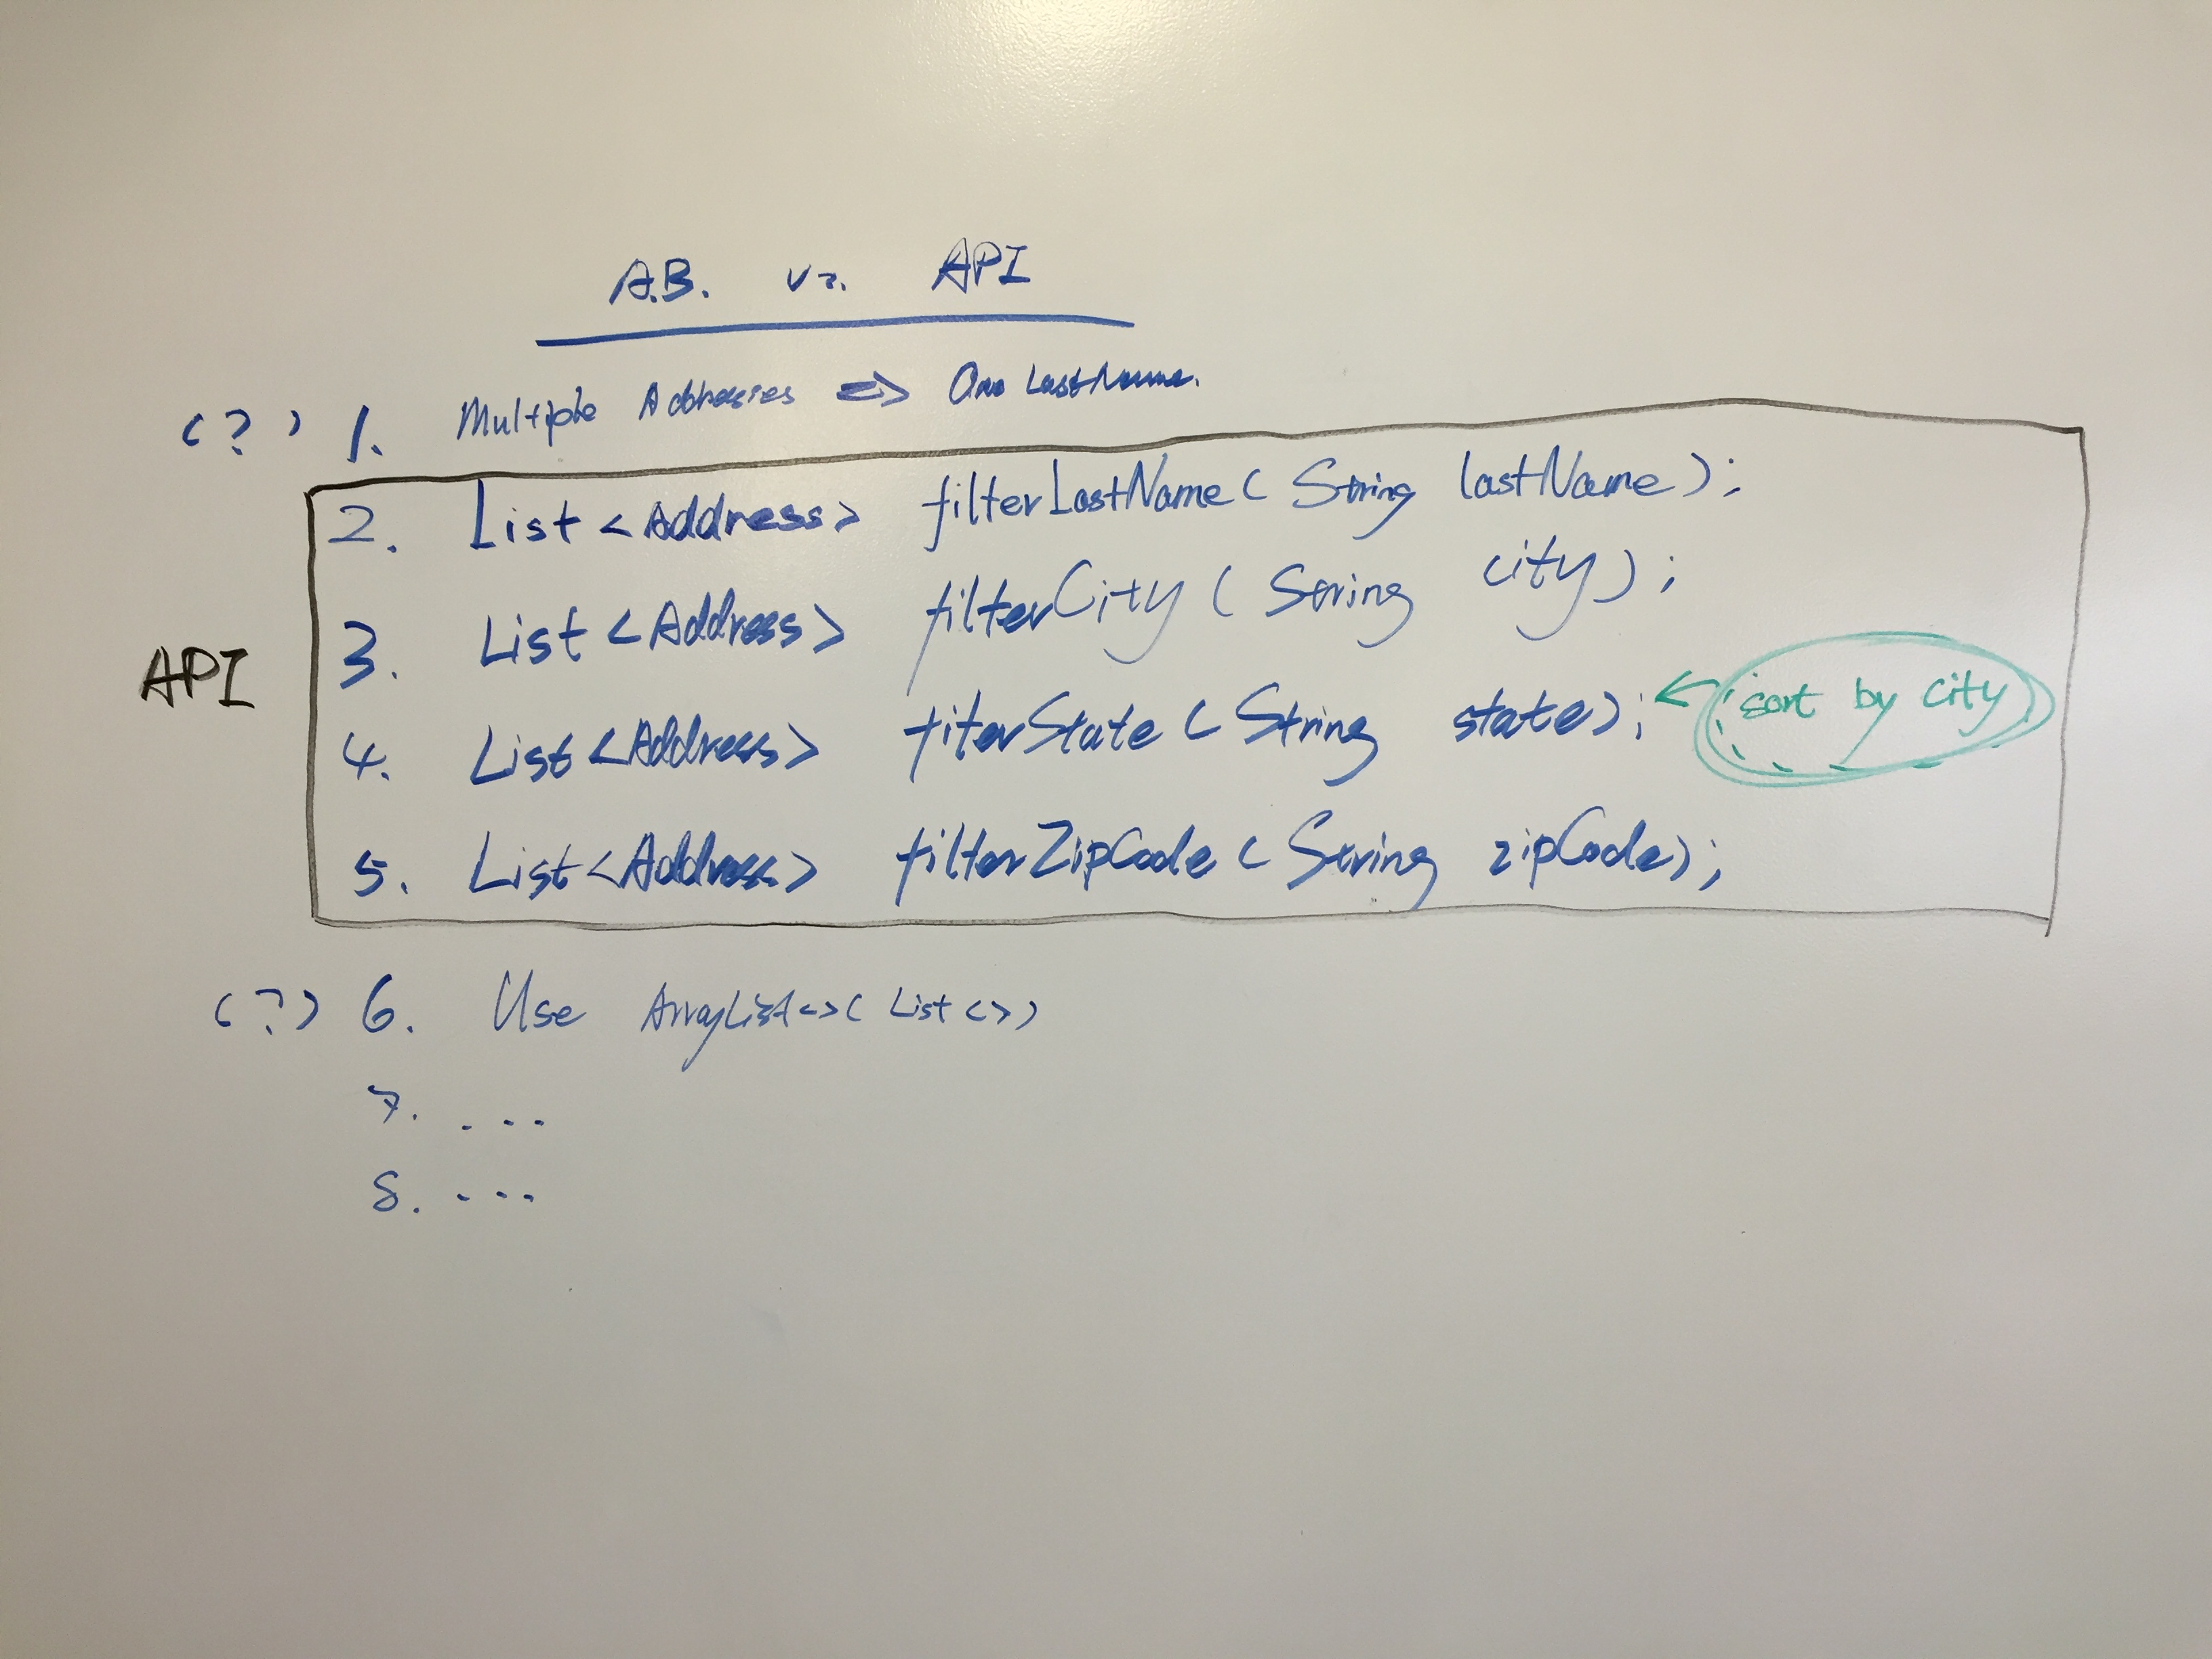 A.B. vs. API
(?) 1. Multiple Addresses => One LastName.
2. List <Address> filterLastName( String lastName);
3. List <Address> filterCity ( String city);
API
4. List <Address> fiterState ( String state); ← sort by city
5. List <Address> filterZipCode ( String zipCode);
(?) 6. Use ArrayList<>( List <>)
7. ...
8. ...